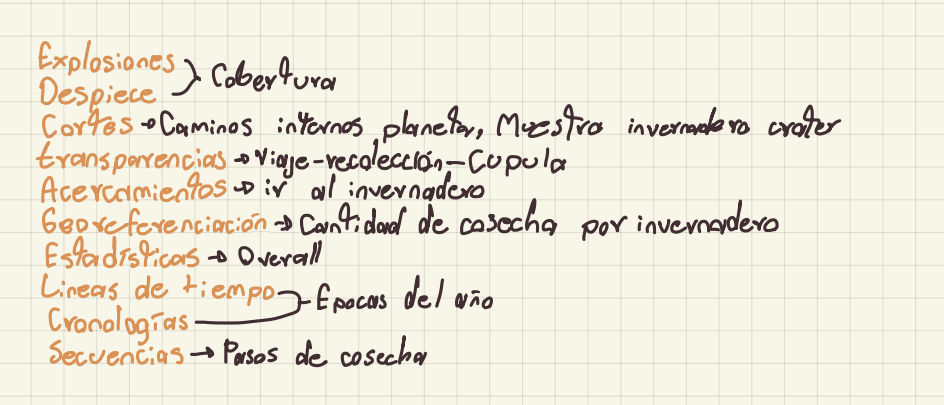 Explosiones
Despiece } Cobertura
Cortes → Caminos internos planeta, Muestra invernadero crater
transparencias → Viaje-recolección-Cupula
Acercamientos → ir al invernadero
Georeferenciación → Cantidad de cosecha por invernadero
Estadísticas → Overall
Lineas de tiempo
Cronologías } Epocas del año
Secuencias → Pasos de cosecha